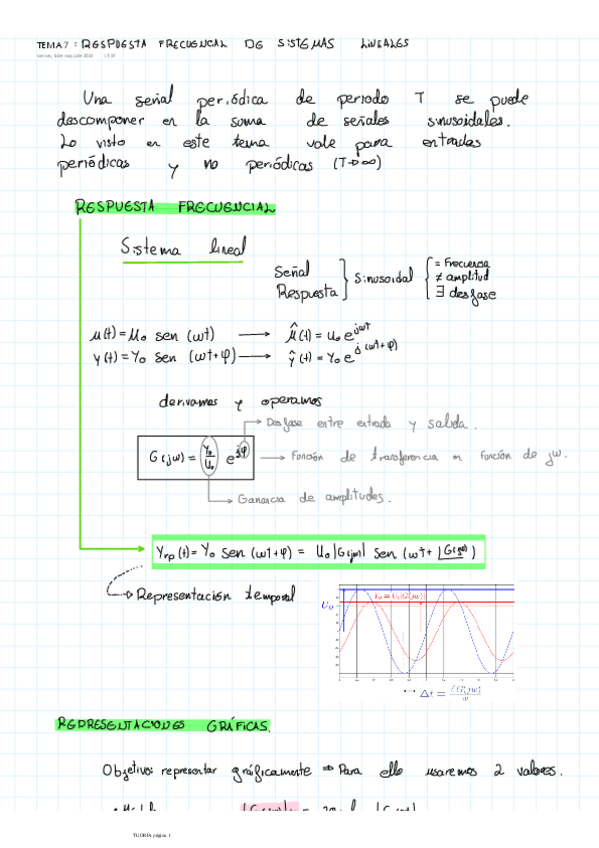 TEMA 7 : RESPUESTA FRECUENCIAL DE SISTEMAS LINEALES
Una señal periódica de periodo T se puede
descomponer en la suma de señales sinusoidales.
Lo visto en este tema vale para entradas
periódicas y no periódicas (T→∞)
RESPUESTA FRECUENCIAL
Sistema lineal
Señal
Respuesta
} Sinusoidal {
= Frecuencia
≠ amplitud
∃ desfase
u(t) = U₀ sen (ωt) → û(t) = U₀ e^{jωt}
y(t) = Y₀ sen (ωt+φ) → ŷ(t) = Y₀ e^{j(ωt+φ)}
derivamos y operamos
→ Desfase entre entrada y salida.
G(jω) = Y₀/U₀ e^{jφ} → Función de transferencia en función de jω.
→ Ganancia de amplitudes.
Yrp(t) = Y₀ sen (ωt+φ) = U₀ |G(jω)| sen (ωt + ∠G(jω))
→ Representación temporal
U₀
Y₀ = U₀|G(jω)|
↔ Δt = ∠G(jω)/ω
REPRESENTACIONES GRÁFICAS.
Objetivo: representar gráficamente ⇒ Para ello usaremos 2 valores.
TEORÍA página 1